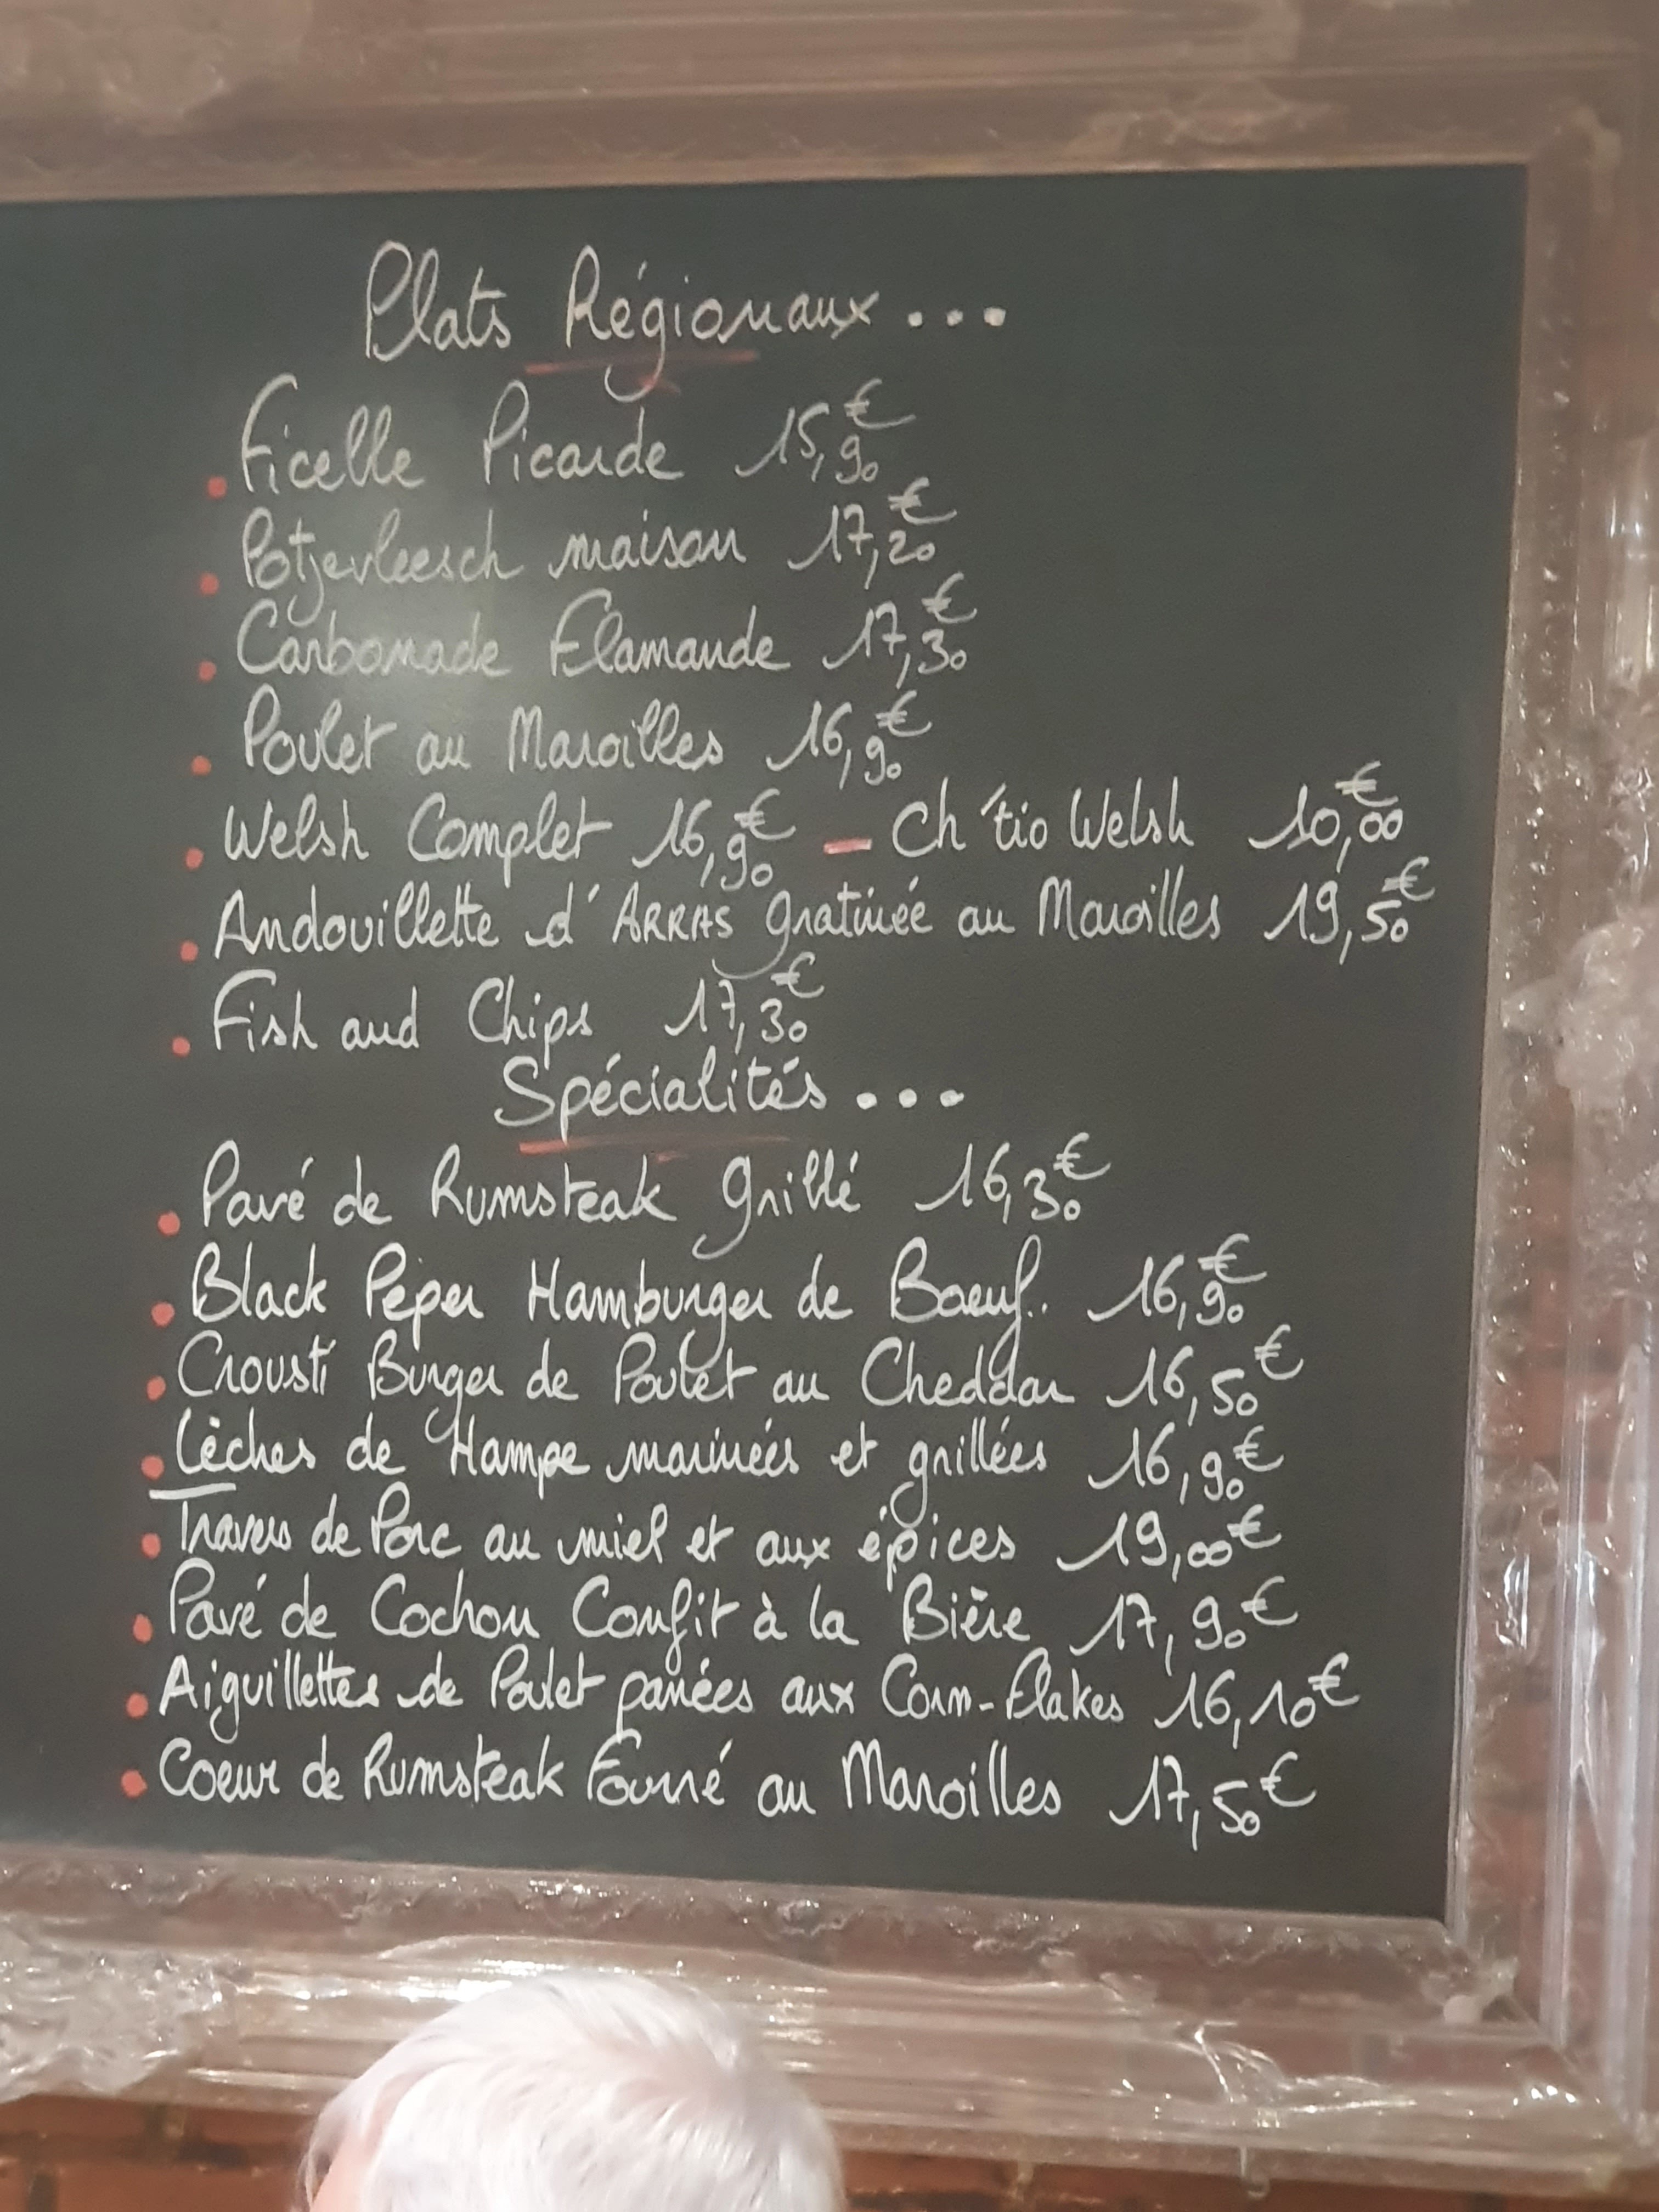 Plats Régionaux...
Ficelle Picarde 15,90€
Potjevleesch maison 17,20€
Carbonade Flamande 17,30€
Poulet au Maroilles 16,90€
Welsh Complet 16,90€ - Ch'tio Welsh 10,00€
Andouillette d'ARRAS gratinée au Maroilles 19,50€
Fish and Chips 17,30€
Spécialités...
Pavé de Rumsteak grillé 16,30€
Black Peper Hamburger de Boeuf.. 16,90€
Crousti Burger de Poulet au Cheddar 16,50€
Lèches de Hampe marinées et grillées 16,90€
Travers de Porc au miel et aux épices 19,00€
Pavé de Cochon Confit à la Bière 17,90€
Aiguillettes de Poulet panées aux Corn-Flakes 16,10€
Coeur de Rumsteak Fourré au Maroilles 17,50€